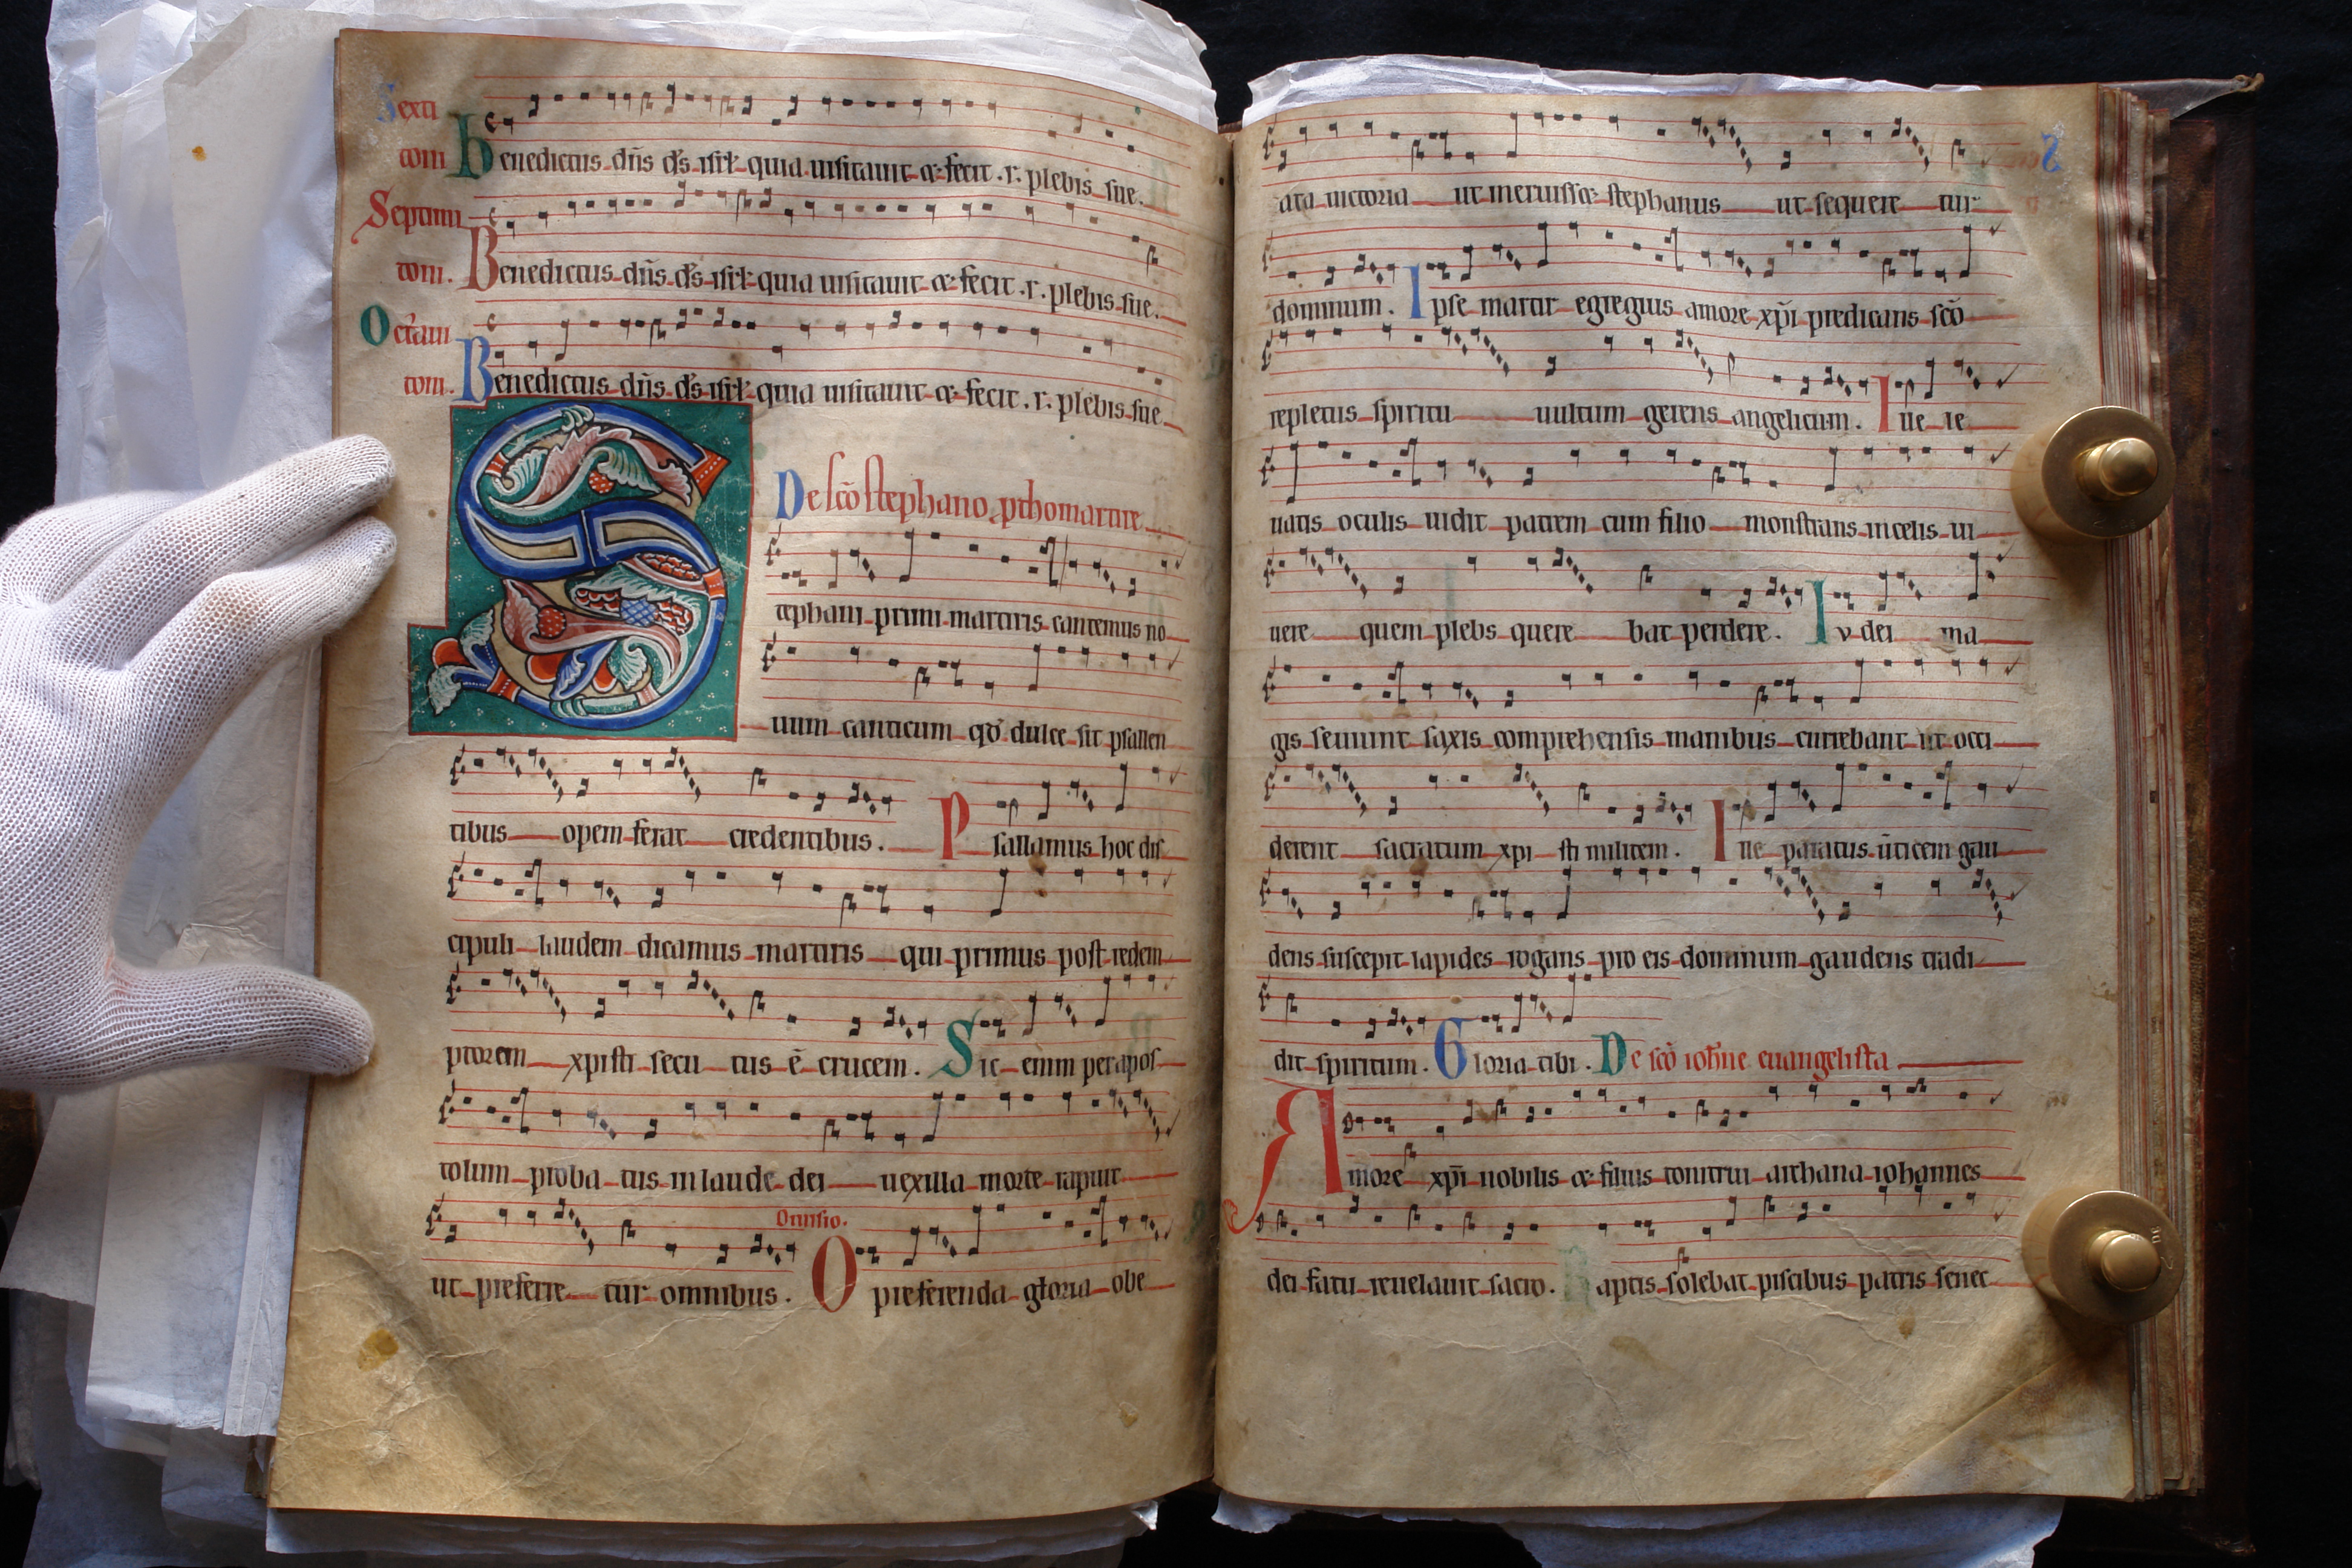 Sexti
tom Benedictus dn̄s ds̄ isrl̄ quia uisitauit & fecit .r. plebis sue.
Septimi
toni. Benedictus dn̄s ds̄ isrl̄ quia uisitauit & fecit .r. plebis sue.
Octaui
toni. Benedictus dn̄s ds̄ isrl̄ quia uisitauit & fecit .r. plebis sue
De sc̄o stephano pthomartire
S tephani primi martiris cantemus no
uum canticum qd̄ dulce sit psallen
tibus opem ferat credentibus. Psallamus hoc dis
cipuli laudem dicamus martiris qui primus post redem
ptorem xpisti secu tus ē crucem. Sic enim per apos
tolum proba tus in laude dei uexilla morte rapuit
ut preferre tur omnibus. Diuisio. O preferenda gloria obe
ata uictoria ut meruiss& stephanus ut sequere tur
dominum. Ipse martir egregius amore xp̄i predicans sc̄o
repletus spiritu uultum gerens angelicum. Ille le
uatis oculis uidit patrem cum filio monstrans in celis ui
uere quem plebs quere bat perdere. Iudei ma
gis seuiunt saxis comprehensis manibus currebant ut occi
derent sacratum xpi sti militem. Ille paratus u̅ticem gau
dens suscepit lapides rogans pro eis dominum gaudens tradi
dit spiritum. Gloria tibi. De sc̄o ioh̄ne euangelista
Amore xp̄i nobilis & filius tonitrui archana iohannes
dei fatu reuelauit sacro. Captis solebat piscibus patris senec